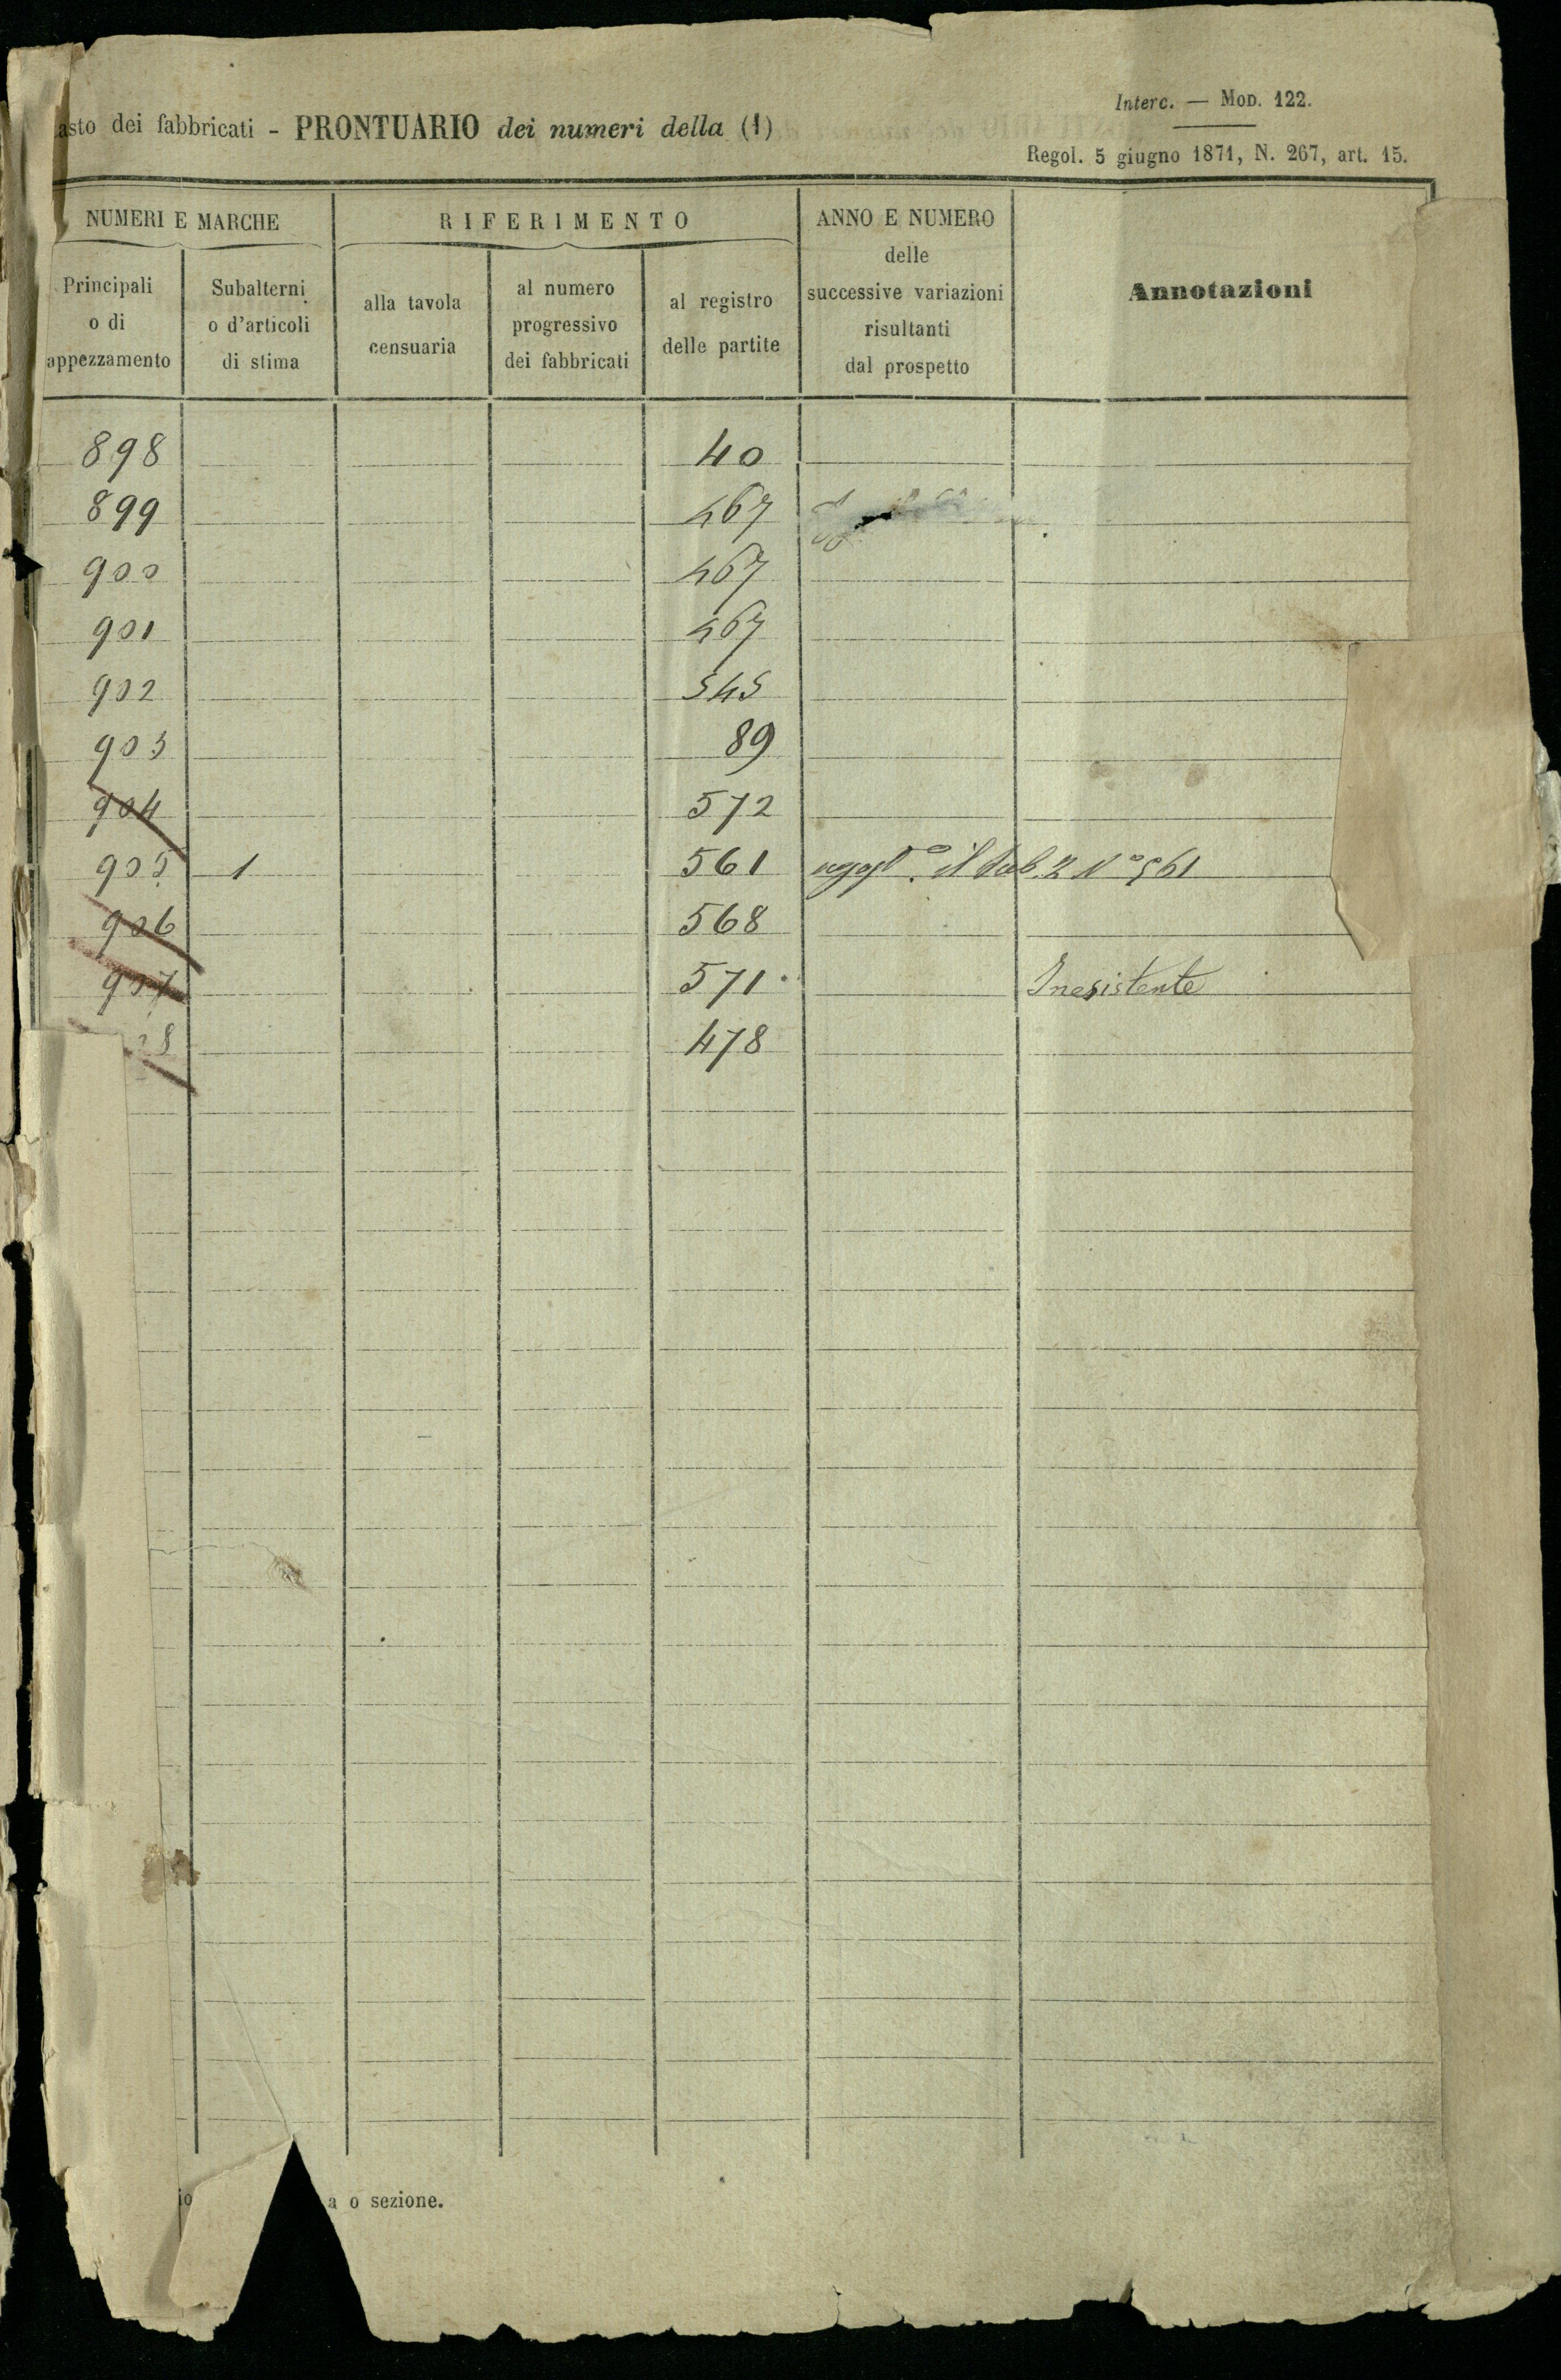 Interc. — Mod. 122.
asto dei fabbricati - PRONTUARIO dei numeri della (1)
Regol. 5 giugno 1871, N. 267, art. 15.
NUMERI E MARCHE
RIFERIMENTO
ANNO E NUMERO
delle
successive variazioni
risultanti
dal prospetto
Annotazioni
Principali
o di
appezzamento
Subalterni
o d'articoli
di stima
alla tavola
censuaria
al numero
progressivo
dei fabbricati
al registro
delle partite
898 40
899 467
900 467
901 467
902 545
903 89
904 572
905 1 561 il sub. 2 N° 561
906 568
907 571 Inesistente
8 478
io
a o sezione.